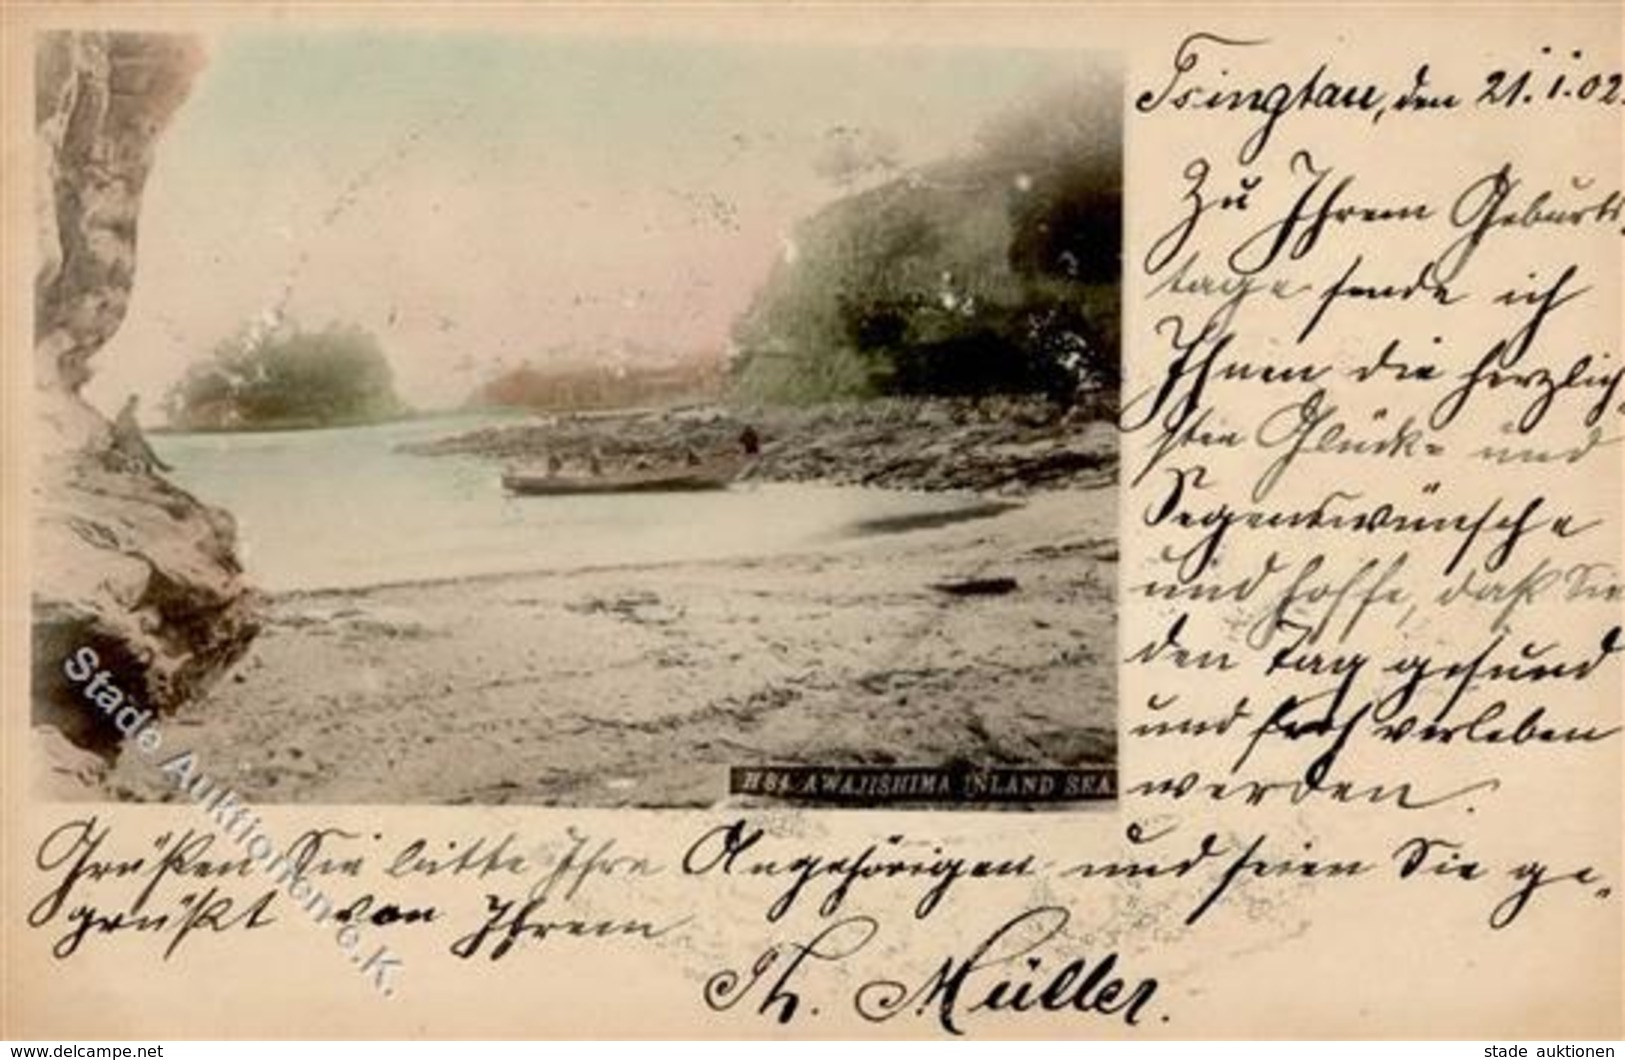 Tsingtau, den 21. 1. 02.
Zu Ihrem Geburts-
tage sende ich
Ihnen die herzlich-
sten Glück- und
Segenswünsche
und hoffe, daß Sie
den Tag gesund
und froh verleben
werden.
H 84. AWAJISHIMA INLAND SEA
Grüßen Sie bitte Ihre Angehörigen und seien Sie ge-
grüßt von Ihrem
Th. Müller.
Stade Auktionen o.K.
www.delcampe.net
stade_auktionen